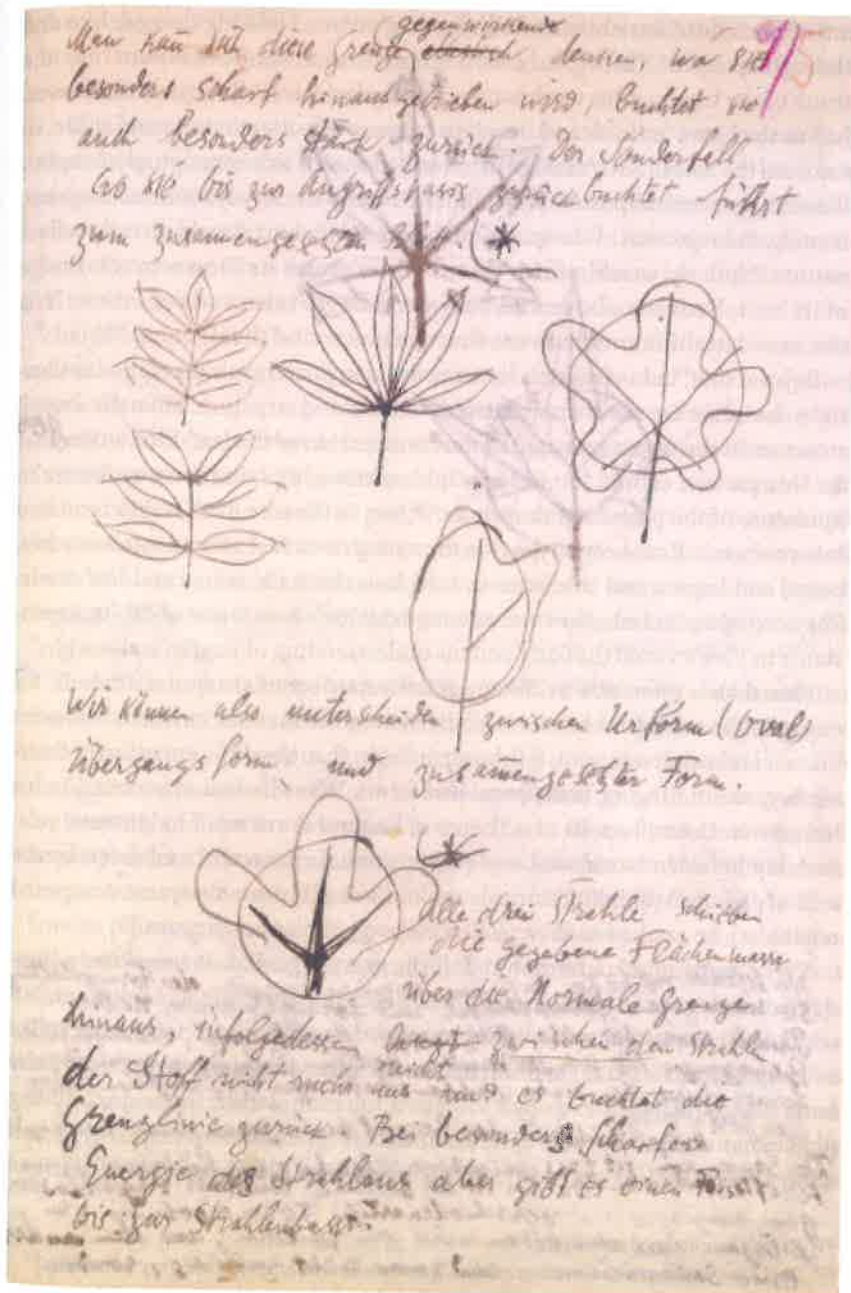 gegenwirkende
Man kann sich diese Grenze elastisch denken, wo sie
besonders scharf hinausgetrieben wird, buchtet sie
auch besonders stark zurück. Der Sonderfall
wo sie bis zur Angriffsbasis zurückbuchtet - führt
zum zusamengesetzten Blatt.
Wir können also unterscheiden zwischen Urform (Oval)
Übergangsform und zusamengesetzter Form.
Alle drei Strahle schieben
die gegebene Flächenmasse
über die Normale Grenze
hinaus, infolgedessen zwischen den Strahlen
reicht
der Stoff nicht mehr aus und es buchtet die
Grenzlinie zurück. Bei besonders scharfer
Energie des Strahlens aber gibt es einen
bis zur Strahlenbasis.